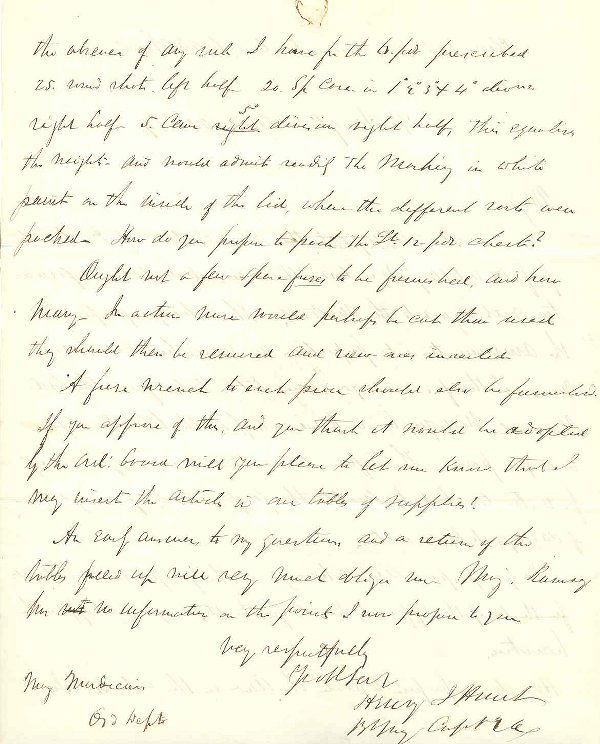 the absence of any rule I have for the 6. pdr prescribed
25. round shot. left half 20. Sp. Case in 1° 2° 3° & 4° divons
right half 5. Cann 5° division right half, this equalizes
the weights and would admit reading the Marking in white
paint on the inside of the lid, where the different sorts were
packed. How do you propose to pack the Lt. 12 pdr. chests?
Ought not a few spare fuzes to be furnished, and how
Many. In action more would perhaps be cut than used
they should then be removed and new ones inserted
A fuze wrench to each piece should also be furnished.
If you approve of this, and you think it would be adopted
by the Ord. board will you please to let me know that I
may insert the article in our tables of supplies!
An early answer to my questions and a return of the
tables filled up will very much oblige me Maj. Ramsay
has no information on the points I now propose to you
Very respectfully
Yr Ob Svt
Henry J Hunt
Maj Mordecai
Ord Dept
Bt Maj Capt 2 Art